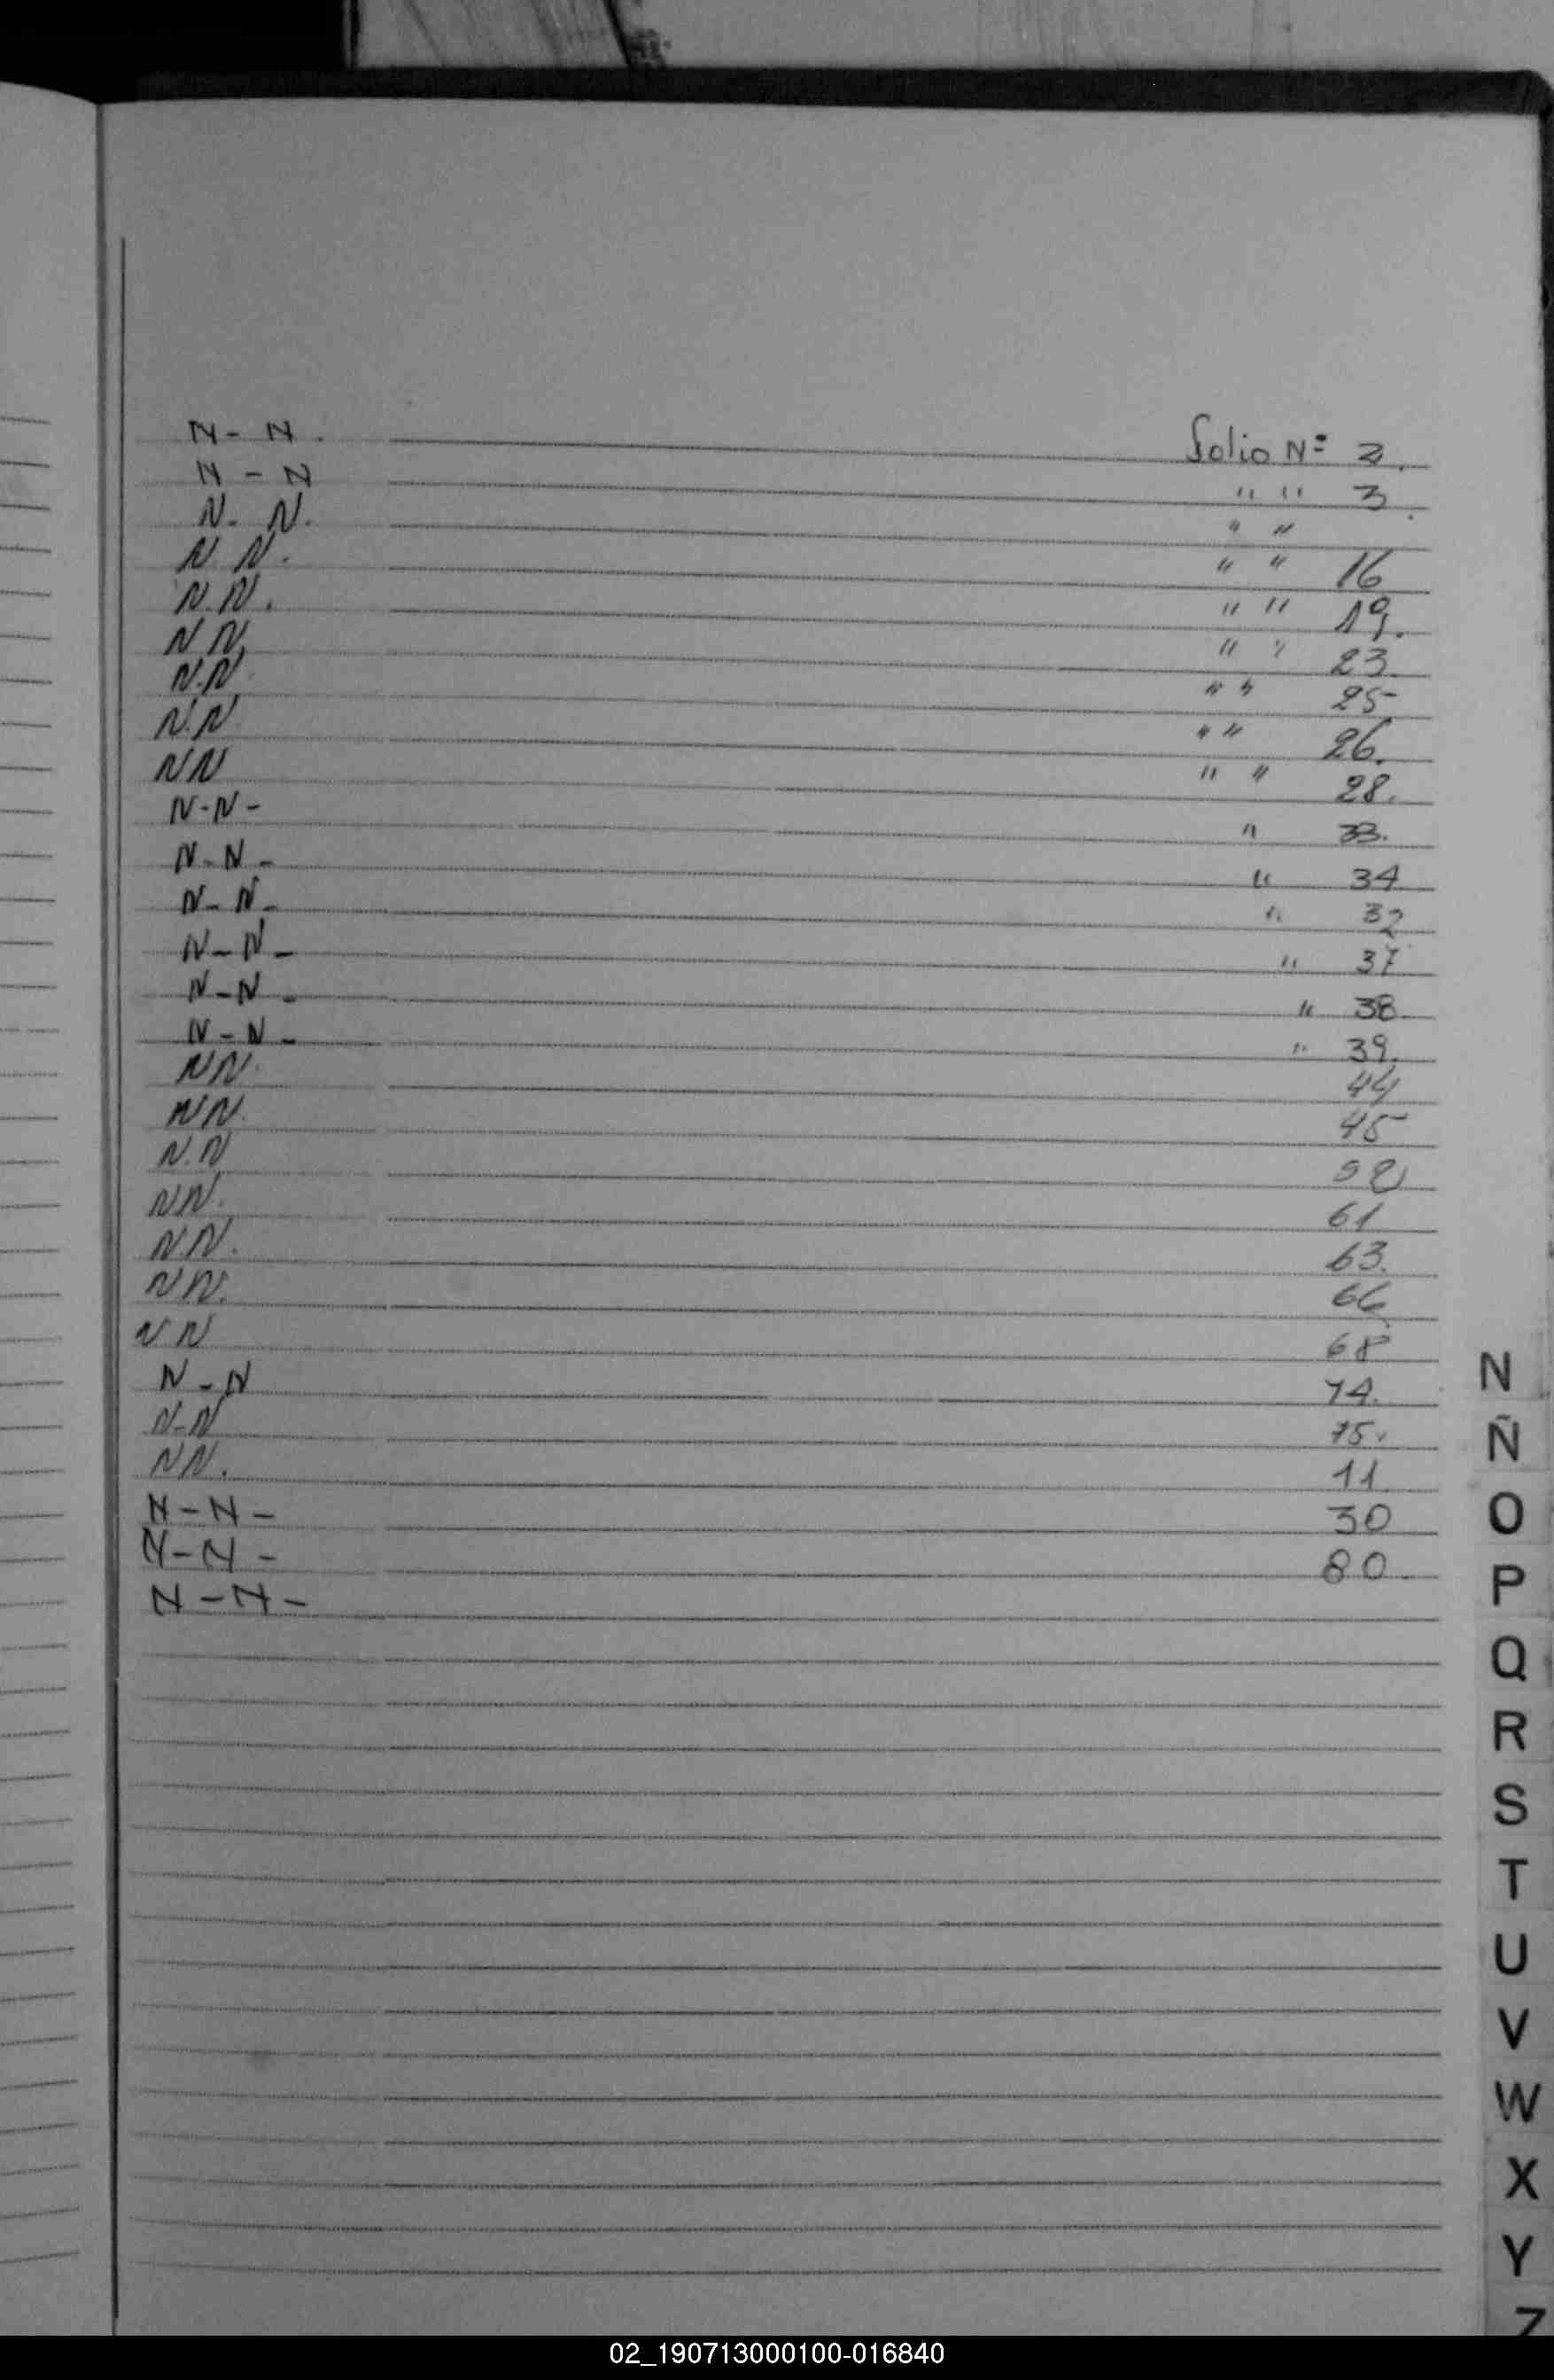 N - N . Folio Nº 2.
N - N " " 3.
N. N. " "
N N. " " 16
N.N. " " 19.
N N. " " 23
N.N. " " 25
N.N " " 26.
NN " " 28.
N-N- " 33.
N-N- " 34
N-N- " 32
N-N- " 37
N-N- " 38
N-N- " 39.
NN. 44
NN. 45
N.N 52
NN. 61
N.N. 63.
NN. 66
NN 68
N-N 74.
N-N 75.
NN. 11
N-N- 30
N-N- 80
N-N-
N
Ñ
O
P
Q
R
S
T
U
V
W
X
Y
Z
02_190713000100-016840